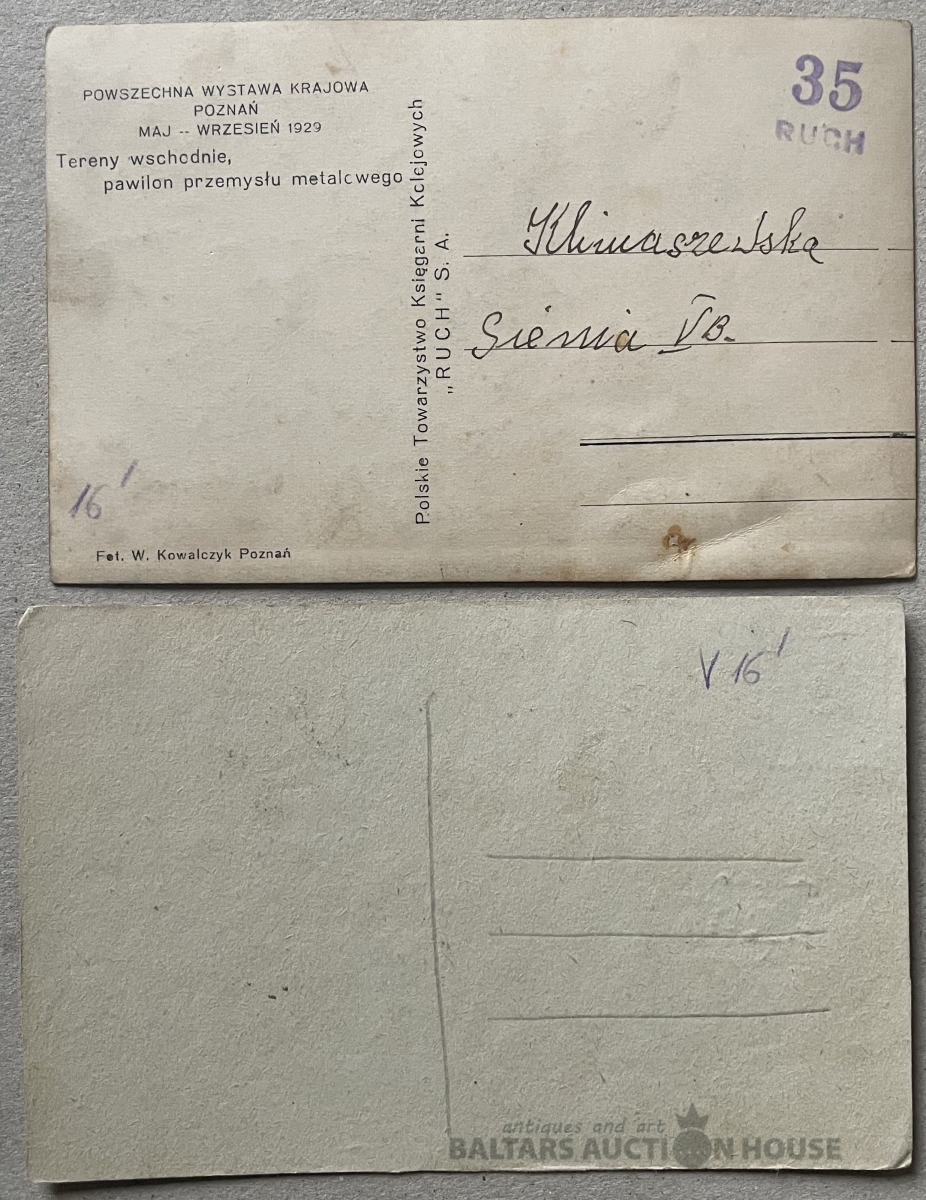 POWSZECHNA WYSTAWA KRAJOWA
POZNAŃ
MAJ -- WRZESIEŃ 1929
Tereny wschodnie,
pawilon przemysłu metalowego
Polskie Towarzystwo Księgarni Kolejowych
„RUCH" S. A.
35
RUCH
Klimaszewska
Gienia VB.
16'
Fot. W. Kowalczyk Poznań
V 16'
antiques and art
BALTARS AUCTION HOUSE